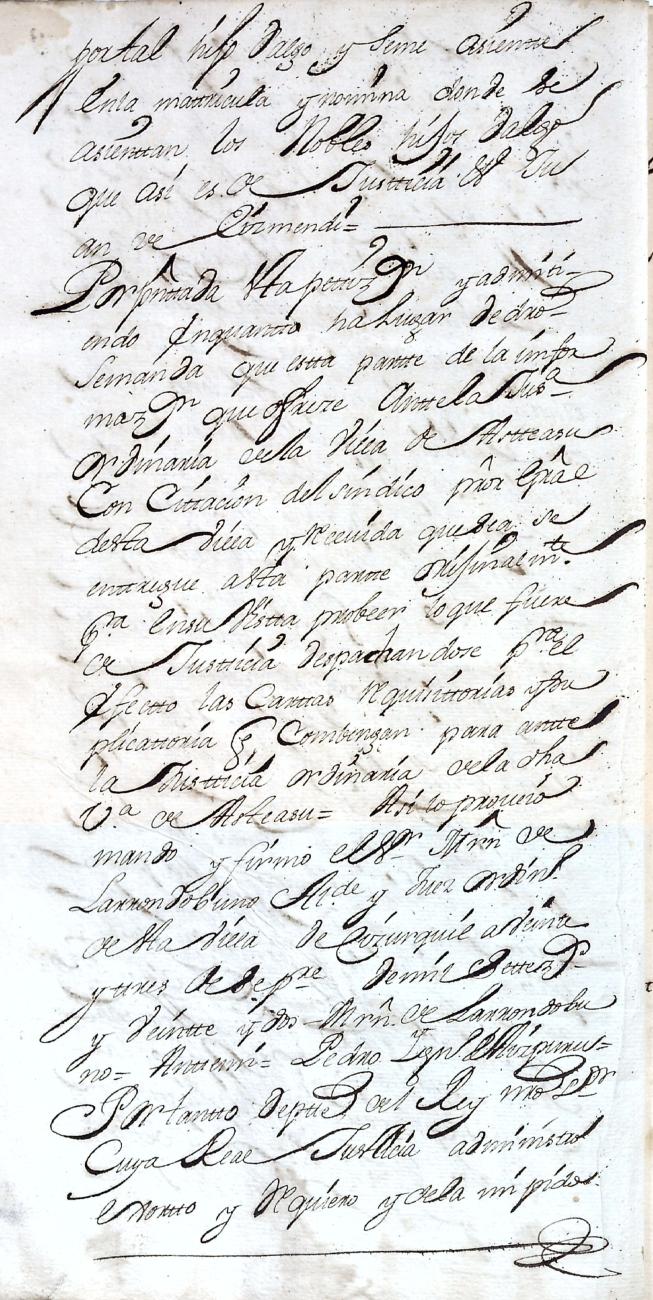 por tal hijo dalgo y seme asiente
en la matricula y nomina donde se
asienttan los Nobles hijos dalgo
que asi es de Justticia &ª Ju
an de Erizmendi=
Por pnttada estta pettizon y admiti-
endo en quantto ha lugar de dro
Se manda que estta partte de la infor
mazon que ofreze Antte la Jusª
ordinaria de la Villa de Astteasu
Con Cittacion del sindico pror Gral
desta Villa y Receuida que sea se
enttregue a esta partte orijinalmte
pª en su Vistta probeer lo que fuere
de Justticia despachandose pra el
efectto las Carttas Requisittorias y su
plicattoria q Combengan para antte
la Justticia ordinaria de la dha
Vª de Asteasu= Asi lo proueió
mando y firmo el Sr Mrn de
Larrondobuno Alde y Juez ordinº
de esta Villa de Cizurquil a Veinte
y tres de Sepre de mil Settezos
y Veintte y dos = Mrn de Larrondobu
no= Antte mi= Pedro Ignº de
Por tantto de ptte del Rey nro Sor
Cuya Real Justticia administro
exortto y Requiero y de la mi pido